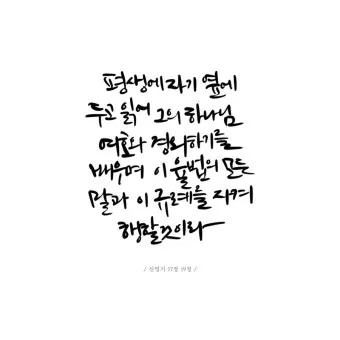 평생에 자기 옆에
두고 읽어 그의 하나님
여호와 경외하기를
배우며 이 율법의 모든
말과 이 규례를 지켜
행할 것이라
/ 신명기 17장 19절 /